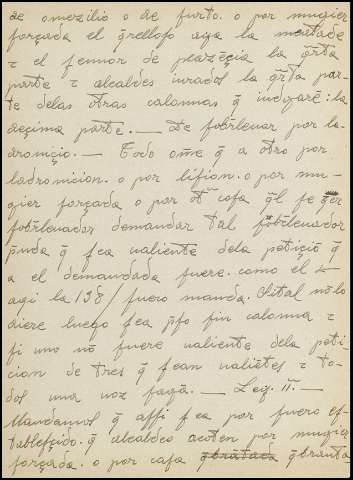 de omezilio o de furto. o por mugier
forçada el q̃relloso aya la meatade
τ el sennor de peazẽçia la q̃rta
parte τ alcaldes iurados la q̃rta par-
te delas otras calonnas q̃ iudgarẽ: la
decima parte. — De sobrleuar por la-
dronicio. — Todo ome q̃ a otro por
ladronicion. o por lision. o por mu-
gier forçada o por otͣ cosa q̃l se
sobrleuador demandar tal sobrleuador
pñda q̃ sea ualiente dela petiçiõ q̃
a el demandada fuere. como el
aqi la 138/ fuero manda. Si tal nõ lo
diere luego sea p̃so sin calonna τ
si uno nõ fuere ualiente dela peti-
cion de tres q̃ sean ualiẽtes τ to-
dos una uoz fagã. — Ley. II. —
Mandamos q̃ assi sea por fuero es-
tablesçido. q̃ alcaldes acoten por mugier
forçada. o por casa q̃brãtada q̃branta-